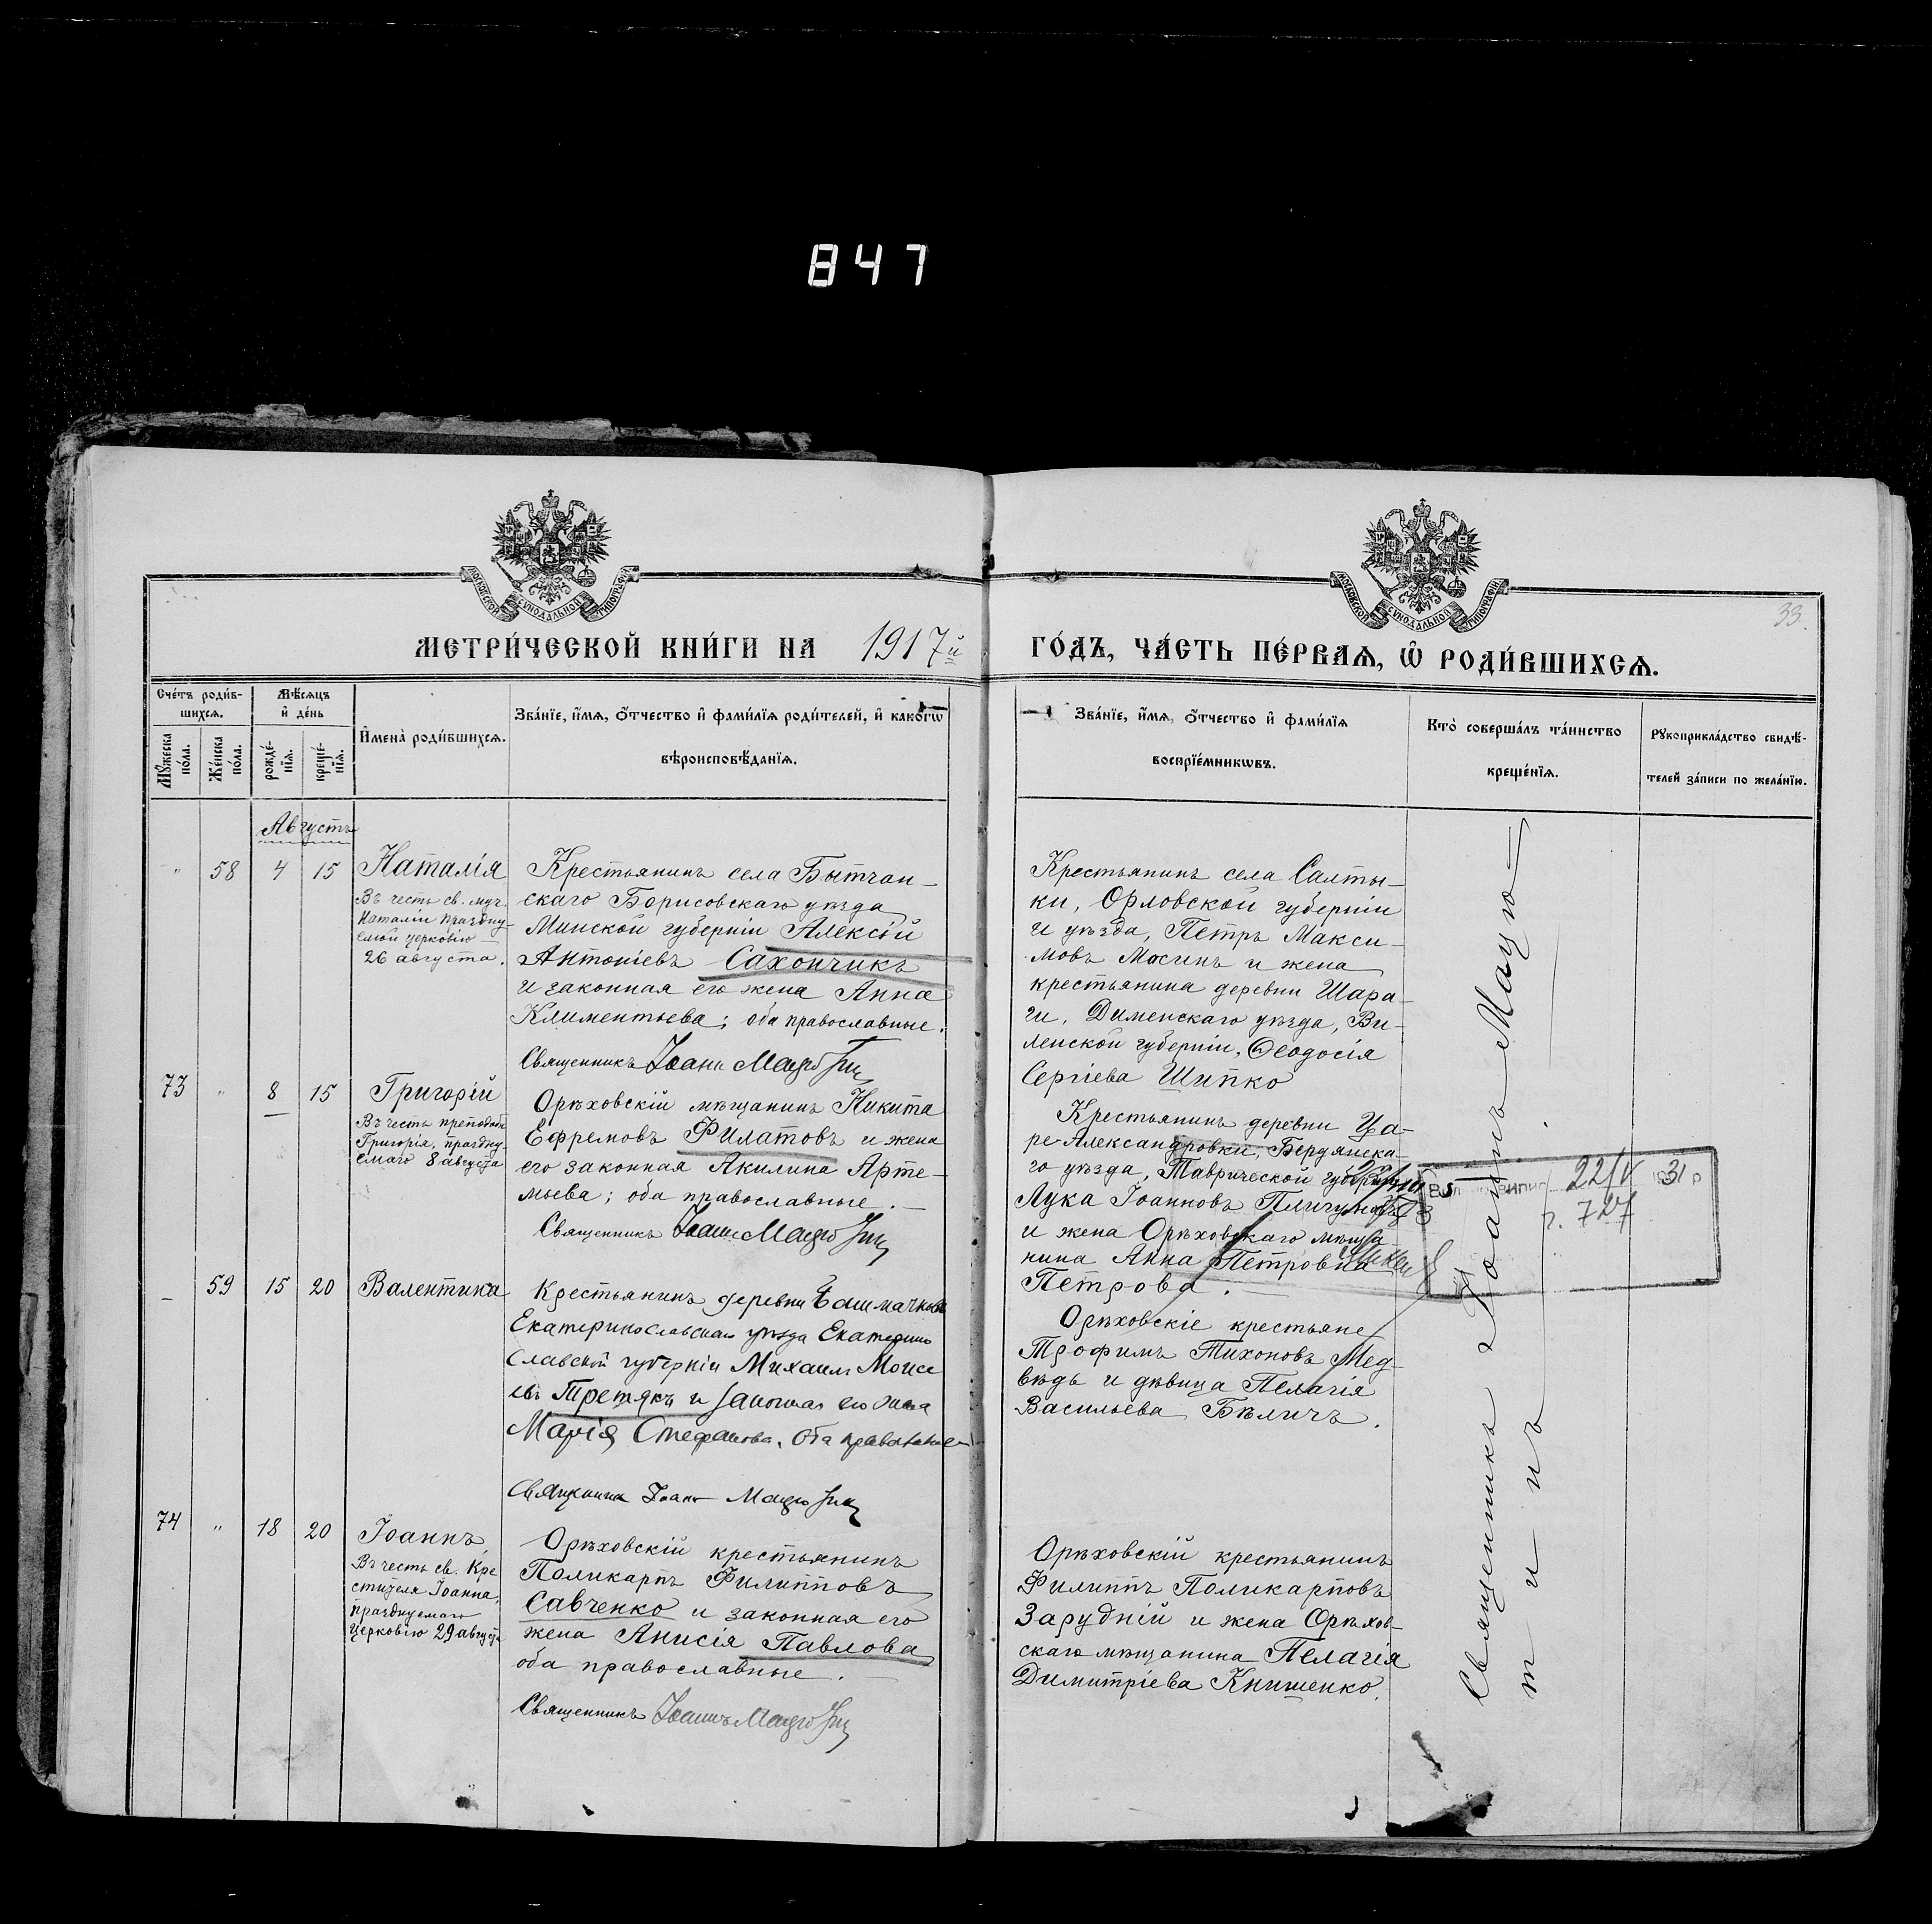 847
МОСКОВСКОЙ СУНОДАЛЬНОЙ ТИПОГРАФІИ
МОСКОВСКОЙ СУНОДАЛЬНОЙ ТИПОГРАФІИ
33.
МЕТРИ́ЧЕСКОЙ КНИ́ГИ НА 1917й
ГО́ДЪ, ЧА́СТЬ ПЕ́РВАѦ, Ѡ҆ РОДИ́ВШИХСѦ.
Сче́тъ роди́в-
шихсѧ.
Мѹ́жеска по́ла.
Же́нска по́ла.
Мѣ́сѧцъ
и҆ де́нь
рожде́-
нїѧ.
креще́-
нїѧ.
И҆мена̀ роди́вшихсѧ.
Зва́нїе, и҆́мѧ, ѻ҆́тчество и҆ фами́лїѧ роди́телей, и҆ како́гѡ
вѣроисповѣ́данїѧ.
Зва́нїе, и҆́мѧ, ѻ҆́тчество и҆ фами́лїѧ
воспрїе́мникѡвъ.
Кто̀ соверша́лъ та́инство
креще́нїѧ.
Рѹкоприкла́дство свидѣ́-
телей за́писи по жела́нїю.
Августъ
" 58 4 15 Наталія
Въ честь св. муч.
Наталіи праздну-
емой церковію
26 августа.
Крестьянинъ села Бытчан-
скаго Борисовскаго уѣзда
Минской губерніи Алексій
Антоніевъ Сахончикъ
и законная его жена Анна
Климентьева; оба православные.
Священникъ Іоаннъ Мацютин
Крестьянинъ села Салты-
ки, Орловской губерніи
и уѣзда, Петръ Макси-
мовъ Мосинъ и жена
крестьянина деревни Шара-
ги, Дименскаго уѣзда, Ви-
ленской губерніи, Ѳеодосія
Сергіева Шипко
73 " 8 15 Григорій
Въ честь преподоб.
Григорія, праздну-
емаго 8 августа
Орѣховскій мѣщанинъ Никита
Ефремовъ Филатовъ и жена
его законная Акилина Арте-
мьева; оба православные.
Священникъ Іоаннъ Мацютин
Крестьянинъ деревни Ца-
ре-Александровки, Бердянска-
го уѣзда, Таврической губерніи
Лука Іоанновъ
и жена Орѣховскаго мѣща-
нина Анна Петровна
Петрова.
22/V 31 р
г. 727
59 15 20 Валентина
Крестьянинъ деревни Башмачки
Екатеринославскаго уѣзда Екатерино
славской губерніи Михаилъ Моисе
евъ Третякъ и законная его жена
Марія Стефанова. Оба православные
Священникъ Іоаннъ Мацютин
Орѣховскіе крестьяне
Трофимъ Тихоновъ Мед-
вѣдь и дѣвица Пелагія
Васильева Бѣличъ.
74 " 18 20 Іоаннъ
Въ честь св. Кре
стителя Іоанна,
празднуемаго
церковію 29 августа
Орѣховскій крестьянинъ
Поликарпъ Филипповъ
Савченко и законная его
жена Анисія Павлова
оба православные.
Священникъ Іоаннъ Мацютин
Орѣховскій крестьянинъ
Филиппъ Поликарповъ
Зарудній и жена Орѣхов-
скаго мѣщанина Пелагія
Димитріева Книшенко.
Священникъ Іоаннъ Мацю-
тинъ